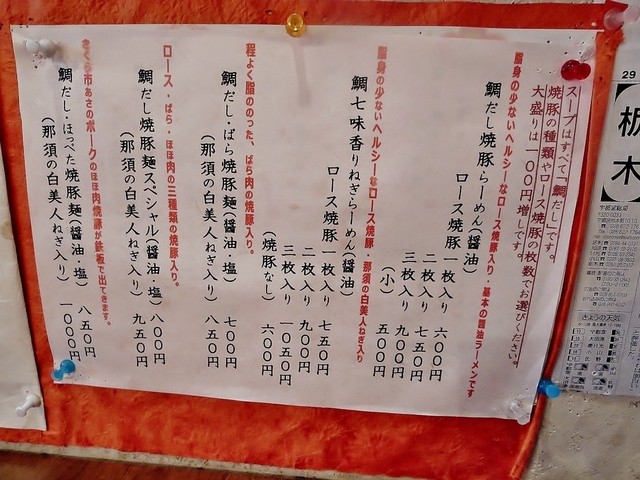 スープはすべて「鯛だし」です。
焼豚の種類やロース焼豚の枚数でお選びください。
大盛りは一〇〇円増しです。
脂身の少ないヘルシーなロース焼豚入り・基本の醤油ラーメンです
鯛だし焼豚らーめん(醤油)
ロース焼豚 一枚入り 六〇〇円
二枚入り 七五〇円
三枚入り 九〇〇円
(小) 五〇〇円
脂身の少ないヘルシーなロース焼豚・那須の白美人ねぎ入り
鯛七味香りねぎらーめん(醤油)
ロース焼豚 一枚入り 七五〇円
二枚入り 九〇〇円
三枚入り 一〇五〇円
(焼豚なし) 六〇〇円
程よく脂ののった、ばら肉の焼豚入り。
鯛だし・ばら焼豚麺(醤油・塩) 七〇〇円
(那須の白美人ねぎ入り) 八五〇円
ロース・ばら・ほほ肉の三種類の焼豚入り。
鯛だし焼豚麺スペシャル(醤油・塩) 八〇〇円
(那須の白美人ねぎ入り) 九五〇円
さくら市あさのポークのほほ肉焼豚が鉄板で出てきます。
鯛だし・ほっぺた焼豚麺(醤油・塩) 八五〇円
(那須の白美人ねぎ入り) 一〇〇〇円
29
栃木
きょうの天気